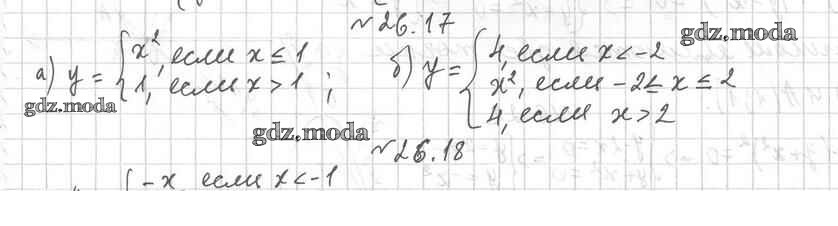 №26.17
gdz.moda
а) y = { x², если x ≤ 1
1, если x > 1 ;
б) y = { 4, если x < -2
x², если -2 ≤ x ≤ 2
4, если x > 2
gdz.moda
gdz.moda
№26.18
{ -x если x < -1